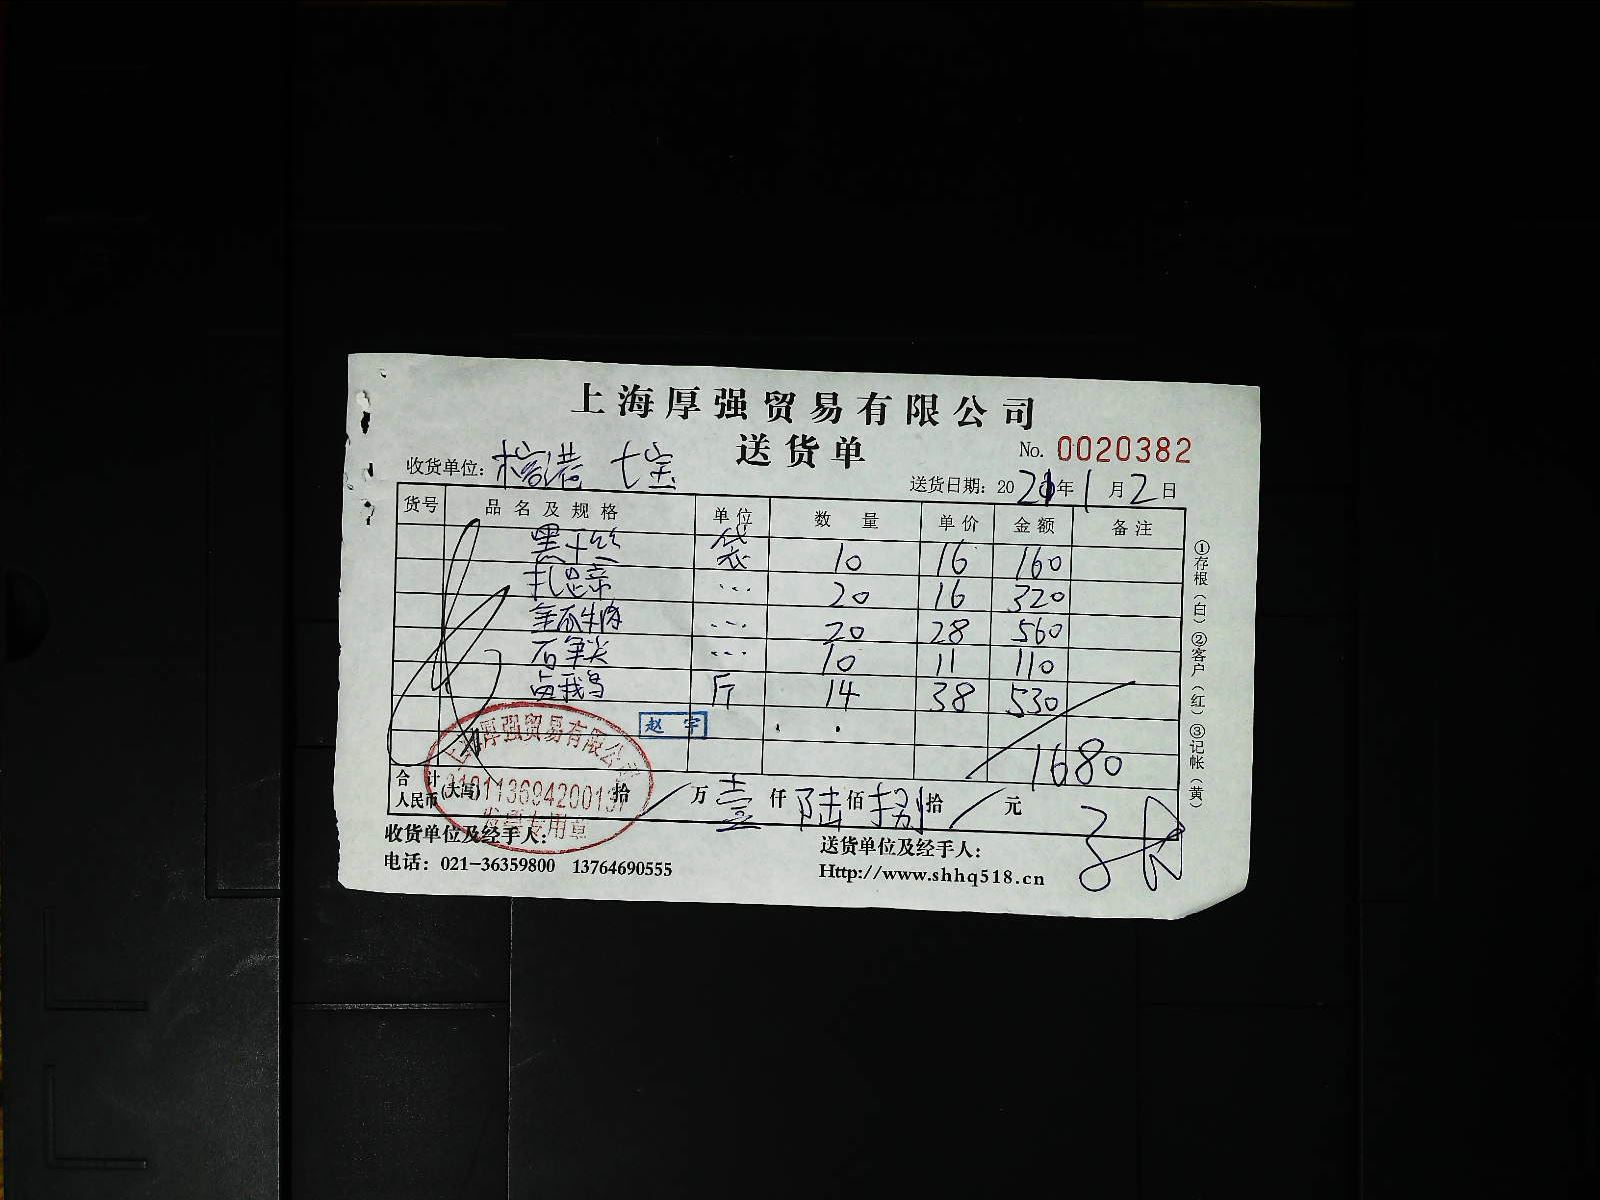 上海厚强贸易有限公司
送货单
No. 0020382
收货单位: 七宝
送货日期: 2021年1月2日
货号 品名及规格 单位 数量 单价 金额 备注
黑千丝 袋 10 16 160
20 16 320
20 28 560
石 10 11 110
卤鹅 斤 14 38 530
赵宇
1680
合计
人民币(大写) 拾 / 万 壹 仟 陆 佰 捌 拾 / 元
上海厚强贸易有限公司
发票专用章
收货单位及经手人:
送货单位及经手人:
电话: 021-36359800 13764690555
Http://www.shhq518.cn
①存根(白)②客户(红)③记帐(黄)